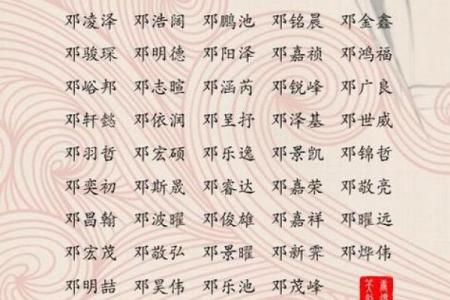 邓凌泽 邓浩阔 邓鹏池 邓铭晨 邓金鑫
邓骏琛 邓明德 邓阳泽 邓嘉祯 邓鸿福
邓峪邦 邓志暄 邓涵芮 邓锐峰 邓广良
邓轩懿 邓依润 邓呈抒 邓泽基 邓世威
邓羽哲 邓宏硕 邓乐逸 邓景凯 邓锦哲
邓奕初 邓斯晟 邓睿达 邓嘉荣 邓敬亮
邓昌翰 邓波曜 邓俊雄 邓嘉祥 邓曜远
邓宏茂 邓敬弘 邓景曜 邓新霁 邓烨伟
邓明喆 邓昊伟 邓乐池 邓茂峰